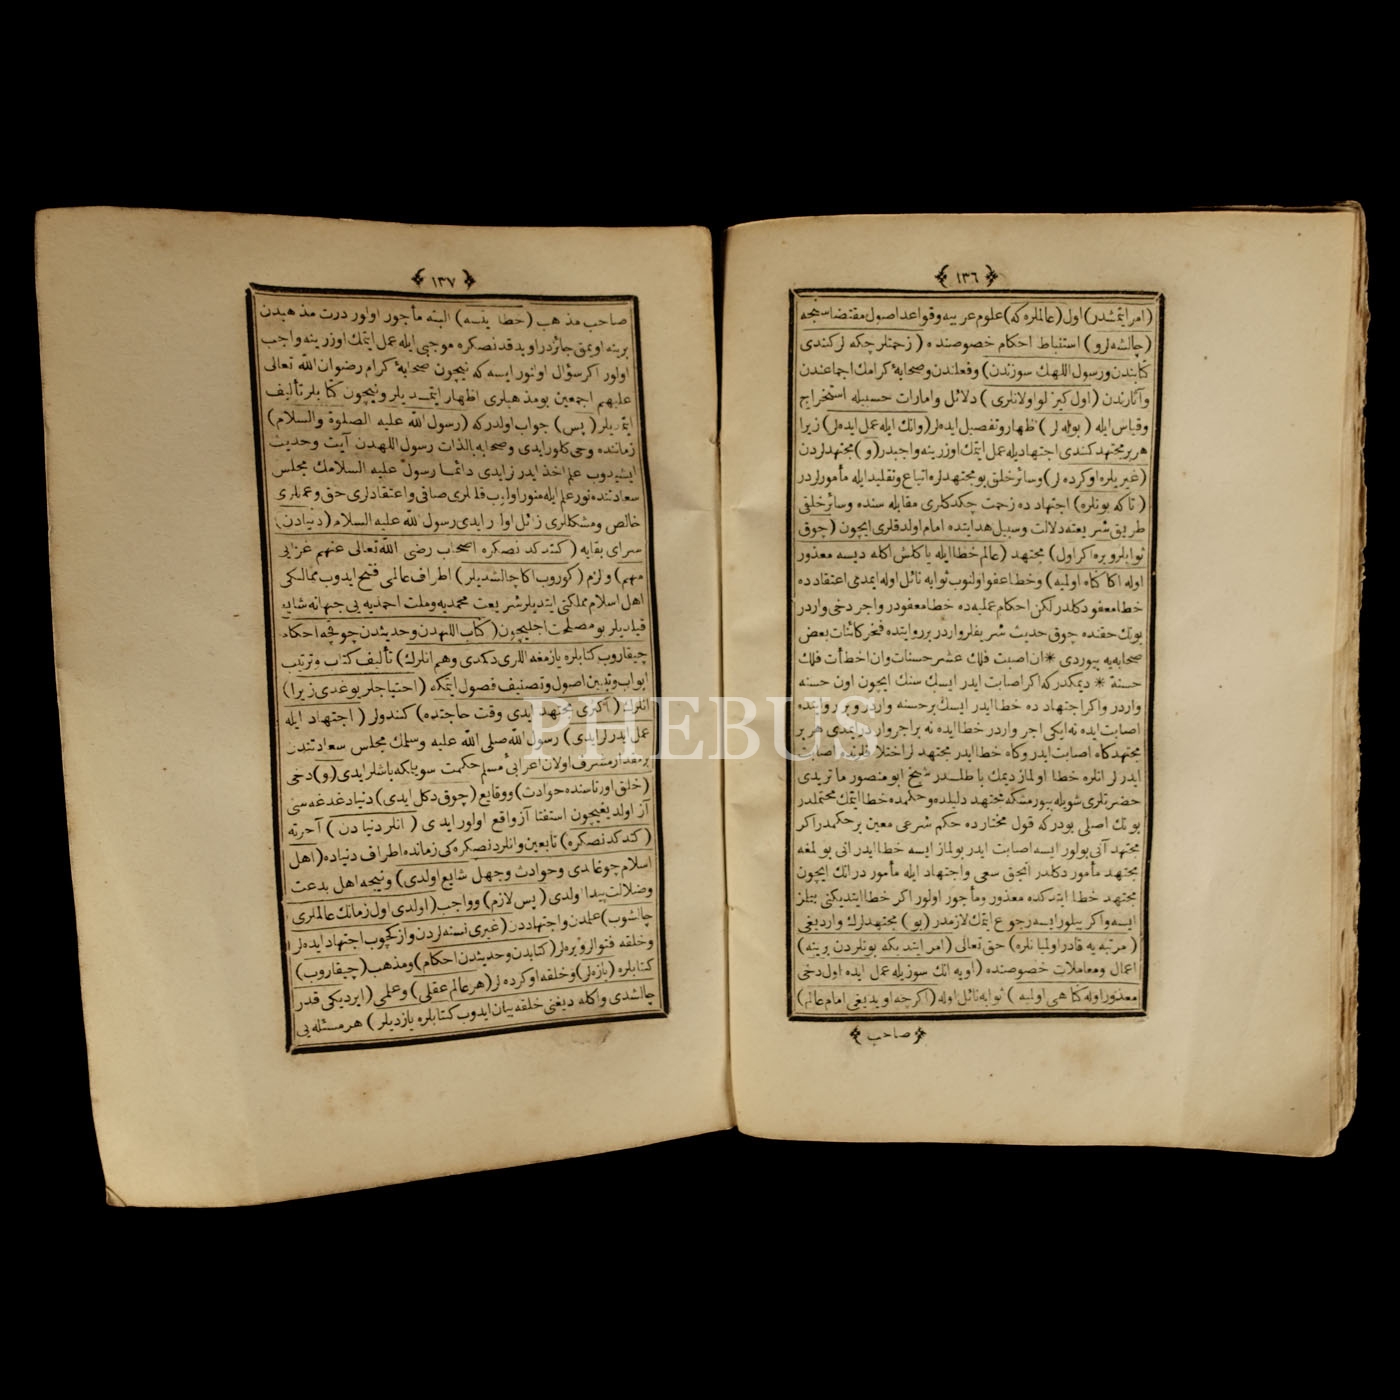 ١٣٦
(امر ايتمشدر) اول (عالملره كه) علوم عربيه وقواعد اصول مقتضاسنجه
(چالشه لرو) استنباط احكام خصوصنده (زحمتلر چكه لر كندى
كتابندن ورسول اللهك سوزندن) وفعلندن وصحابۀ كرامك اجماعندن
وآثارندن (اول كيزلو اولانلرى) دلائل وامارات حسبيله استخراج
وقياس ايله (بوله لر) اظهار وتفصيل ايده لر (وانك ايله عمل ايده لر) زيرا
هر بر مجتهد كندى اجتهاديله عمل ايتمك اوزرينه واجبدر (و) مجتهدلردن
(غيريلره اوكرده لر) وسائر خلق بو مجتهدلره اتباع وتقليد ايله مأمورلردر
(تا كه بونلره) اجتهادده زحمت چكدكلرى مقابله سنده وسائر خلقى
طريق شريعته دلالت وسبيل هدايتده امام اولدقلرى ايچون (چوق
ثوابلر ويره اكر اول) مجتهد (عالم خطا ايله ياكلش اكله ديسه معذور
اوله اكا كناه اولميه) وخطا عفو اولنوب ثوابه نائل اوله ايمدى اعتقادده
خطا معفو دكلدر لكن احكام عمليه ده خطا معفودر واجر دخى واردر
بونك حقنده چوق حديث شريفلر واردر بر روايتده فخر كائنات بعض
صحابه يه بيوردى * ان اصبت فلك عشر حسنات وان اخطأت فلك
حسنة * ديمكدر كه اكر اصابت ايدر ايسك سنك ايچون اون حسنه
واردر واكر اجتهادده خطا ايدر ايسك بر حسنه واردر وبر روايتده
اصابت ايده نه ايكى اجر واردر خطا ايده نه بر اجر واردر ايمدى هر بر
مجتهد كاه اصابت ايدر وكاه خطا ايدر مجتهدلر اختلافلرنده اصابت
ايدرلر انلره خطا اولماز ديمك باطلدر شيخ ابو منصور ماتريدى
حضرتلرى شويله بيورمشكه مجتهد دليلده وحكمده خطا ايتمك محتملدر
بونك اصلى بودر كه قول مختارده حكم شرعى معين بر حكمدر اكر
مجتهد آنى بولور ايسه اصابت ايدر بولماز ايسه خطا ايدر انى بولمغه
مجتهد مأمور دكلدر آنجق سعى واجتهاد ايله مأموردر انك ايچون
مجتهد خطا ايتدكده معذور ومأجور اولور اكر خطا ايتديكنى بيلمز
ايسه واكر بيلور ايسه رجوع ايتمك لازمدر (بو) مجتهدلرك وارديغى
(مرتبه يه قادر اولميانلره) حق تعالى (امر ايتديكه بونلردن برينه)
اعمال ومعاملات خصوصنده (اويه انك سوزيله عمل ايده اول دخى
معذور اوله كناهى اولميه) ثوابه نائل اوله (اكرچه اويديغى امام عالم)
صاحب
١٣٧
صاحب مذهب (خطا ايتسه) البته مأجور اولور درت مذهبدن
برينه اويمق جائزدر اويدقدنصكره موجبى ايله عمل ايتمك اوزرينه واجب
اولور اكر سؤال اولنور ايسه كه نيچون صحابۀ كرام رضوان الله تعالى
عليهم اجمعين بو مذهبلرى اظهار ايتمديلر ونيچون كتابلر تأليف
ايتمديلر (پس) جواب اولدر كه (رسول الله عليه الصلوة والسلام)
زماننده وحى كلور ايدى وصحابه بالذات رسول اللهدن آيت وحديث
ايشيدوب علم اخذ ايدرلر ايدى دائما رسول عليه السلامك مجلس
سعادتنده نور علم ايله منور اولوب قلبلرى صافى واعتقادلرى حق وعمللرى
خالص ومشكللرى زائل اولور ايدى رسول الله عليه السلام (دنيادن)
سراى بقايه (كتدكدنصكره اصحاب رضى الله تعالى عنهم غزايى
مهم) ولازم (كوروب اكا چالشديلر) اطراف عالمى فتح ايدوب ممالكى
اهل اسلام مملكتى ايتديلر شريعت محمديه وملت احمديه يى جهانه شايع
قيلديلر بو مصلحت اجليچون (كتاب اللهدن وحديثدن چوقجه احكام
چيقاروب كتابلره يازمغه اللرى دكمدى وهم انلرك) تأليف كتاب وترتيب
ابواب وتبيين اصول وتصنيف فصول ايتمكه (احتياجلر يوغدى زيرا)
انلرك (اكثرى مجتهد ايدى وقت حاجتده) كندولر (اجتهاد ايله
عمل ايدرلر ايدى) رسول الله صلى الله عليه وسلمك مجلس سعادتندن
بر مقدار مشرف اولان اعرابئ مسلم حكمت سويلمكه باشلر ايدى (و) دخى
(خلق اورتاسنده حوادث) ووقايع (چوق دكل ايدى) دنيا دغدغه سى
آز اولديغيچون استفتا آز واقع اولور ايدى (انلر دنيادن) آخرته
(كتدكدنصكره) تابعين وانلردنصكره كى زمانده اطراف دنياده (اهل
اسلام چوغالدى وحوادث وجهل شايع اولدى) ونيجه اهل بدعت
وضلالت پيدا اولدى (پس لازم) وواجب (اولدى اول زمانك عالملرى
چالشوب) علمدن واجتهاددن (غيرى نسنه لردن واز كچوب اجتهاد ايده لر
وخلقه فتوالر ويره لر (كتابدن وحديثدن احكام) ومذهب (چيقاروب)
كتابلره (يازه لر) وخلقه اوكرده لر (هر عالم عقلى) وعلمى (ايرديكى قدر
چالشدى واكله ديغنى خلقه بيان ايدوب كتابلره يازديلر) هر مسئله يى
PHEBUS